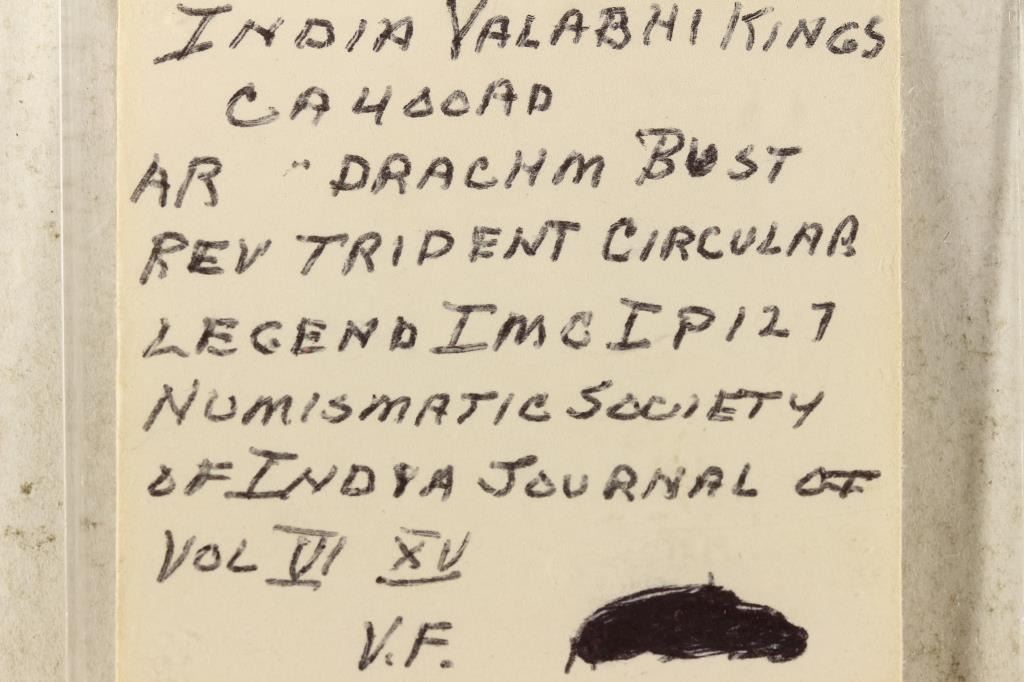 INDIA VALABHI KINGS
CA 400AD
AR " DRACHM BUST
REV TRIDENT CIRCULAR
LEGEND IMC I P127
NUMISMATIC SOCIETY
OF INDYA JOURNAL OF
VOL VI XV
V.F.